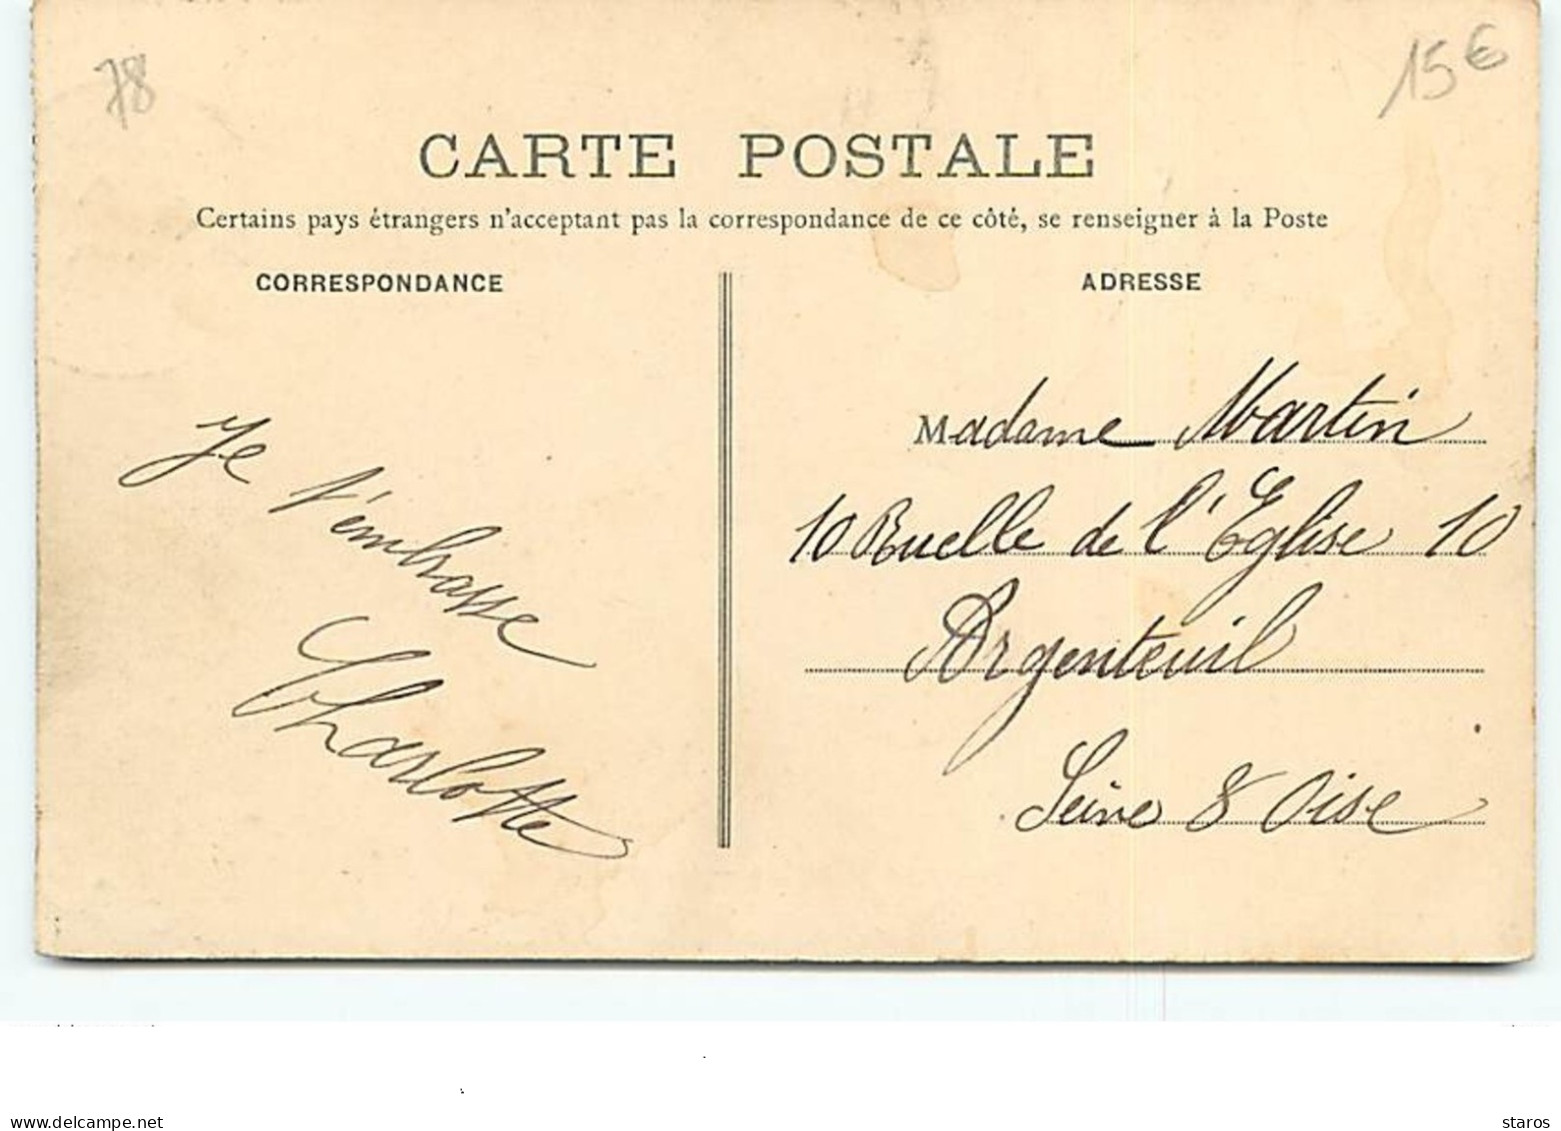 78
15 €
CARTE POSTALE
Certains pays étrangers n'acceptant pas la correspondance de ce côté, se renseigner à la Poste
CORRESPONDANCE
Je
t'embrasse
Charlotte
ADRESSE
Madame Martin
10 Ruelle de l'Eglise 10
Argenteuil
Seine & Oise
www.delcampe.net
staros